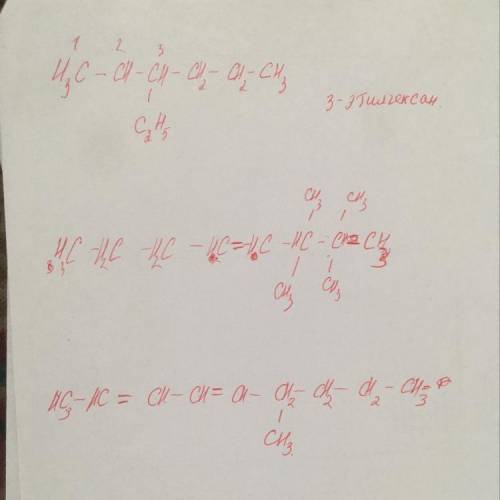 1 2 3
H₃C – CH – CH – CH₂ – CH₂ – CH₃
C₂H₅
3-этилгексан.
CH₃ CH₃
H₃C – H₂C – H₂C – HC = HC – HC – CH = CH₃
CH₃ CH₃
H₃C – HC = CH – CH = CH – CH₂ – CH₂ – CH₂ – CH₃ =
CH₃.